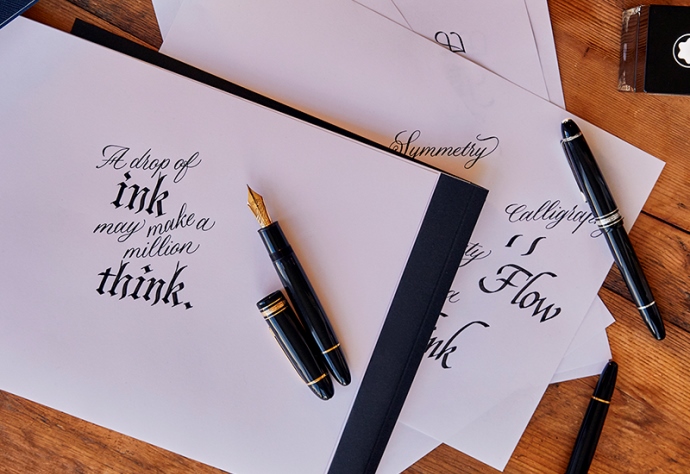 A drop of
ink
may make a
million
think.
Symmetry
Calligraphy
Flow